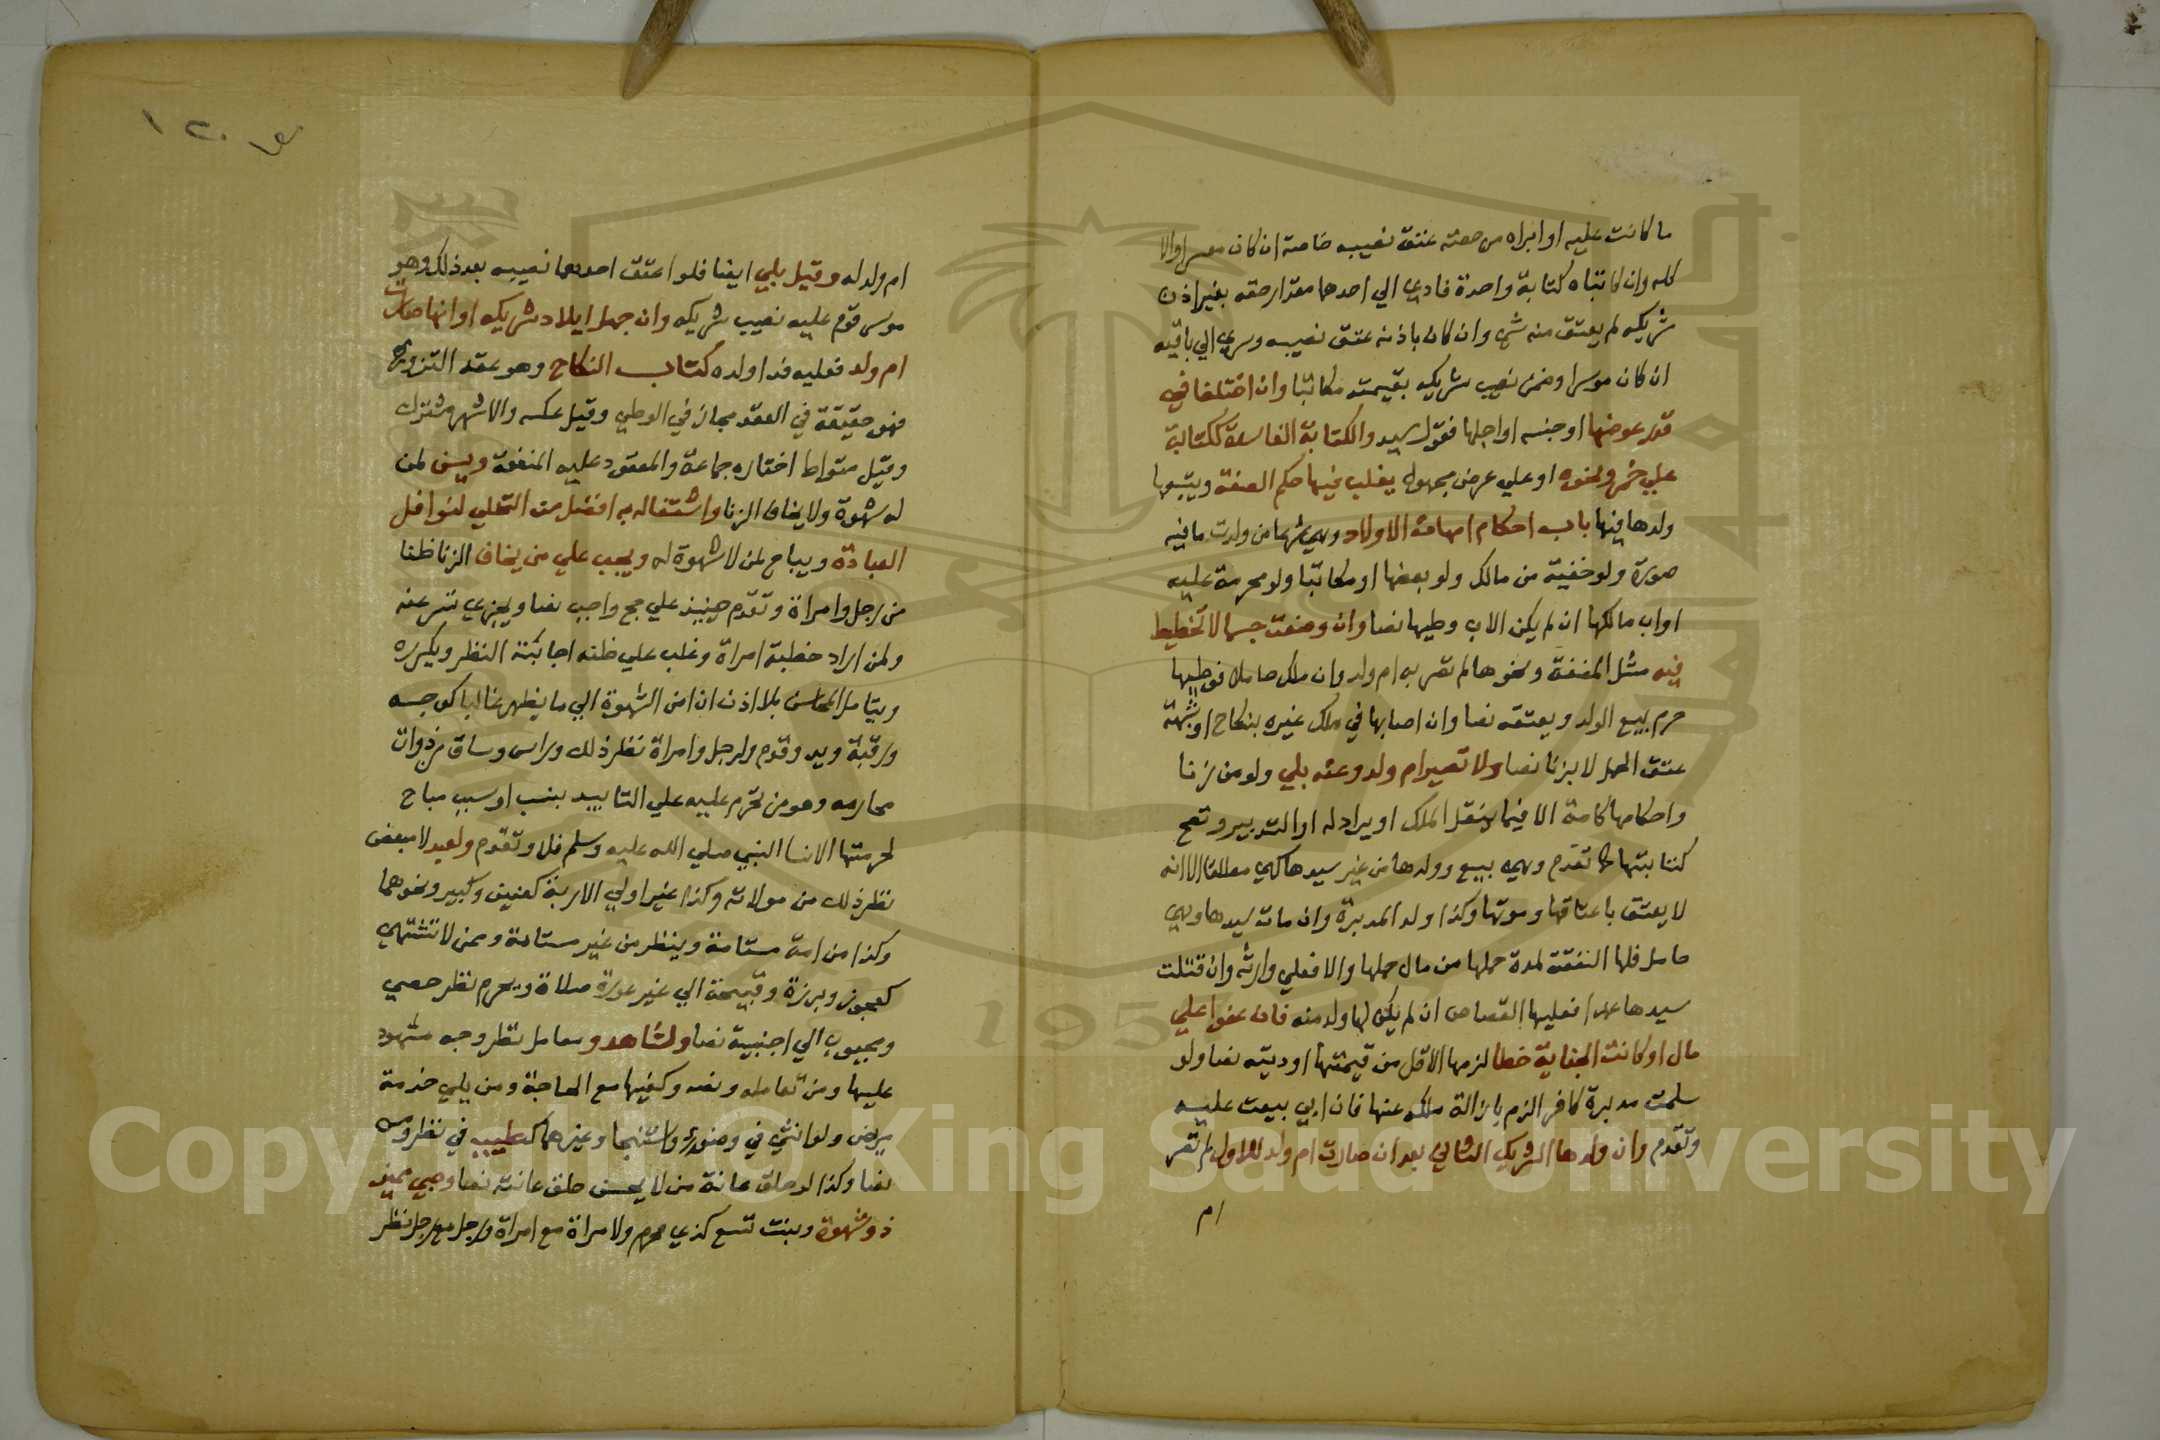 ما كانت عليه او ابراه من حصته عتق نصيبه خاصة ان كان معسرا والا
كله وان كاتباه كتابة واحدة فادى الي احدهما مقدار حقه بغير اذن
شريكه لم يعتق منه شي وان كان باذنه عتق نصيبه وسري الي باقيه
ان كان موسرا وضمن نصيب شريكه بقيمته مكاتبا وان اختلفا في
قدر عوضها او جنسه او اجلها فقول سيد والكتابة الفاسدة ككتابة
علي خمر ونحوه او علي عرض مجهول يغلب فيها حكم الصفة ويتبعها
ولدها فيها باب احكام امهات الاولاد وهي شرعا من ولدت ما فيه
صورة ولو خفية من مالك ولو بعضها او مكاتبا ولو محرمة عليه
او اب مالكها ان لم يكن الاب وطيها نصا وان وضعت جسما لا تخطيط
فيه مثل المضغة ونحوها لم تصر به ام ولد وان ملك حاملا فوطيها
حرم بيع الولد ويعتقه نصا وان اصابها في ملك غيره بنكاح او شبهة
عتق الحمل لا بزنا نصا ولا تصير ام ولد وعنه بلي ولو من زنا
واحكامها كامة الا فيما ينقل الملك او يراد له او التدبير وتصح
كتابتها كما تقدم وهبه بيع وولدها من غير سيدها كهي مطلقا الا انه
لا يعتق باعتاقها وموتها وكذا ولد المدبرة وان مات سيدها وهي
حامل فلها النفقة لمدة حملها من مال حملها والا فعلي وارثه وان قتلت
سيدها عمدا فعليها القصاص ان لم يكن لها ولد منه فان عفوا علي
مال او كانت الجناية خطا لزمها الاقل من قيمتها او ديته نصا ولو
سلمت مدبرة كافر الزم بازالة ملكه عنها فان ابي بيعت عليه
وتقدم وان ولدها الشريك الثاني بعد ان صارت ام ولد للاول لم تصر
ام
ام ولد له وقيل بلي ايضا فلو اعتق احدهما نصيبه بعد ذلك وهو
موسر قوم عليه نصيب شريكه وان جهل ايلاد شريكه او انها صارت
ام ولد فعليه فدا ولده كتاب النكاح وهو عقد التزويج
فهو حقيقة في العقد مجاز في الوطي وقيل عكسه والاشهر مشترك
وقيل متواطا اختاره جماعة والمعقود عليه المنفعة ويسن لمن
له شهوة ولا يخاف الزنا واشتغاله به افضل من التخلي لنوافل
العبادة ويباح لمن لا شهوة له ويجب علي من يخاف الزنا ظنا
من رجل وامراة وتقدم حينيذ علي حج واجب نصا ويجزي تسر عنه
ولمن اراد خطبة امراة وغلب علي ظنه اجابته النظر ويكرره
ويتامل المحاسن بلا اذن ان امن الشهوة الي ما يظهر غالبا كوجه
ورقبة ويد وقدم ولرجل وامراة نظر ذلك وراس وساق من ذوات
محارمه وهو من تحرم عليه علي التابيد بنسب او سبب مباح
لحرمتها الا نسا النبي صلي الله عليه وسلم فلا وتقدم ولعبد لا مبعض
نظر ذلك من مولاته وكذا غير اولي الاربة كعنين وكبير ونحوهما
وكذا من امة مستامة وينظر من غير مستامة وممن لا تشتهي
كعجوز وبرزة وقبيحة الي غير عورة صلاة ويحرم نظر خصي
ومجبوب الي اجنبية نصا ولشاهد ومعامل نظر وجه مشهود
عليها ومن تعامله ونصه وكفيها مع الحاجة ومن يلي خدمة
مريض ولو انثي في وضوء واستنجا وغيرهما كطبيب في نظر ومس
نصا وكذا لو حلق عانة من لا يحسن حلق عانته نصا وصبي مميز
ذو شهوة وبنت تسع كذي محرم ولامراة مع امراة ورجل مع رجل نظر
Copyright © King Saud University